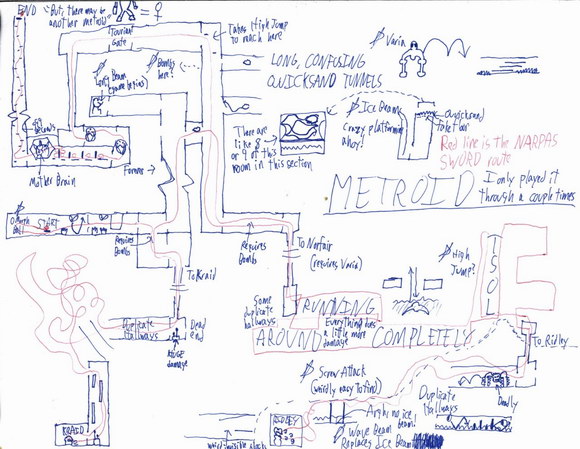 END
"But, there may be
another metroid"
= ♀
Tourian
Gate
Takes High Jump
to reach here
Varia
Long Beam
(game begins)
Bombs
here?
LONG, CONFUSING
QUICKSAND TUNNELS
Ice Beam
Crazy platforming
ahoy!
Quicksand
There are
like 8
or 9 of this
room in this section
Red line is the NARPAS
SWORD route
Mother Brain
METROID
I only played it
through a couple times
START
Requires
Bombs
To Kraid
Requires
Bombs
To Norfair
(requires Varia)
High
Jump?
ISOL
Some
duplicate
hallways
RUNNING
Everything does
a little more
damage
AROUND COMPLETELY
Duplicate
hallways
Dead
end
Huge
damage
To Ridley
Screw Attack
(weirdly easy to find)
Duplicate
Hallways
Deadly
KRAID
RIDLEY
Argh no ice
beam!
Wave Beam
Replaces Ice Beam